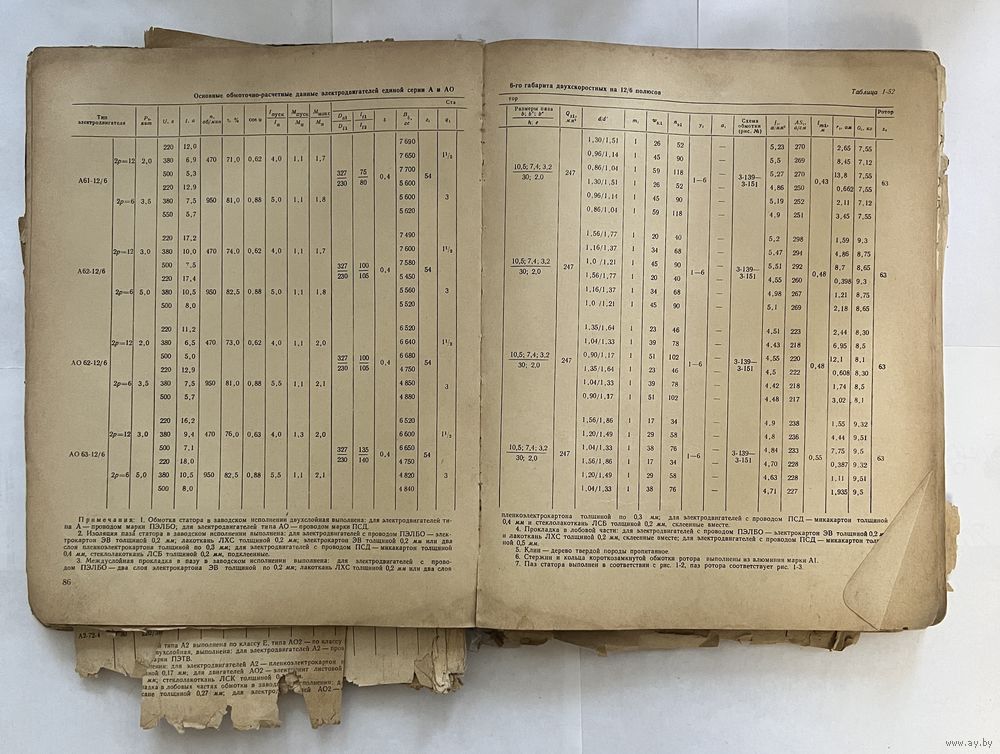 Основные обмоточно-расчетные данные электродвигателей единой серии А и АО
Ста
Тип электродвигателя Р₂, квт U, в I, а n, об/мин η, % cos φ Iпуск/Iн Mпуск/Mн Mмакс/Mн Dа1/Di1 l t1/l t2 δ
А61-12/6
2p=12 2,0 470 71,0 0,62 4,0 1,1 1,7
220 12,0 7 690
380 6,9 7 650
500 5,3 7 700
2p=6 3,5 950 81,0 0,88 5,0 1,1 1,8
220 12,9 5 600
380 7,5 5 600
550 5,7 5 620
327/230 75/80 0,4 54 1¹/₂ 3
А62-12/6
2p=12 3,0 470 74,0 0,62 4,0 1,1 1,7
220 17,2 7 490
380 10,0 7 600
500 7,5 7 580
2p=6 5,0 950 82,5 0,88 5,0 1,1 1,8
220 17,4 5 450
380 10,5 5 560
500 8,0 5 520
327/230 100/105 0,4 54 3
АО 62-12/6
2p=12 2,0 470 73,0 0,62 4,0 1,1 2,0
220 11,2 6 520
380 6,5 6 640
500 5,0 6 680
2p=6 3,5 950 81,0 0,88 5,5 1,1 2,1
220 12,9 4 750
380 7,5 4 850
500 5,7 4 880
327/230 100/105 0,4 54 3
АО 63-12/6
2p=12 3,0 470 76,0 0,63 4,0 1,3 2,0
220 16,2 6 520
380 9,4 6 600
500 7,1 6 650
2p=6 5,0 950 82,5 0,88 5,5 1,1 2,1
220 18,0 4 750
380 10,5 4 820
500 8,0 4 840
327/230 135/140 0,4 54 3
Примечания: 1. Обмотка статора в заводском исполнении двухслойная выполнена: для электродвигателей ти-
па А — проводом марки ПЭЛБО; для электродвигателей типа АО — проводом марки ПСД.
2. Изоляция паза статора в заводском исполнении выполнена: для электродвигателей с проводом ПЭЛБО — элек-
трокартон ЭВ толщиной 0,2 мм; лакоткань ЛХС толщиной 0,2 мм; электрокартон ЭВ толщиной 0,2 мм или два
слоя пленкоэлектрокартона толщиной по 0,3 мм; для электродвигателей с проводом ПСД — микакартон толщиной
0,4 мм, стеклолакоткань ЛСБ толщиной 0,2 мм, подклеенные.
3. Междуслойная прокладка в пазу в заводском исполнении выполнена: для электродвигателей с прово-
дом ПЭЛБО — два слоя электрокартона ЭВ толщиной по 0,2 мм; лакоткань ЛХС толщиной 0,2 мм или два слоя
86
6-го габарита двухскоростных на 12/6 полюсов
Таблица 1-52
тор
Ротор
Размеры паза b; b'; b"/h; e Qп1, мм² d/d' m₁ wк1 nп1 y₁ a₁ Схема обмотки (рис. №) j₁, а/мм² AS₁, а/см lm1, м r₁, ом G₁, кг z₂
10,5; 7,4; 3,2/30; 2,0 247 1—6 3-139— 3-151 0,43 63
1,30/1,51 1 26 52 — 5,23 270 2,65 7,55
0,96/1,14 1 45 90 — 5,5 269 8,45 7,12
0,86/1,04 1 59 118 — 5,27 270 13,8 7,55
1,30/1,51 1 26 52 — 4,86 250 0,662 7,55
0,96/1,14 1 45 90 — 5,19 252 2,11 7,12
0,86/1,04 1 59 118 — 4,9 251 3,45 7,55
10,5; 7,4; 3,2/30; 2,0 247 1—6 3-139— 3-151 0,48 63
1,56/1,77 1 20 40 — 5,2 298 1,59 9,3
1,16/1,37 1 34 68 — 5,47 294 4,86 8,75
1,0 /1,21 1 45 90 — 5,51 292 8,7 8,65
1,56/1,77 1 20 40 — 4,55 260 0,398 9,3
1,16/1,37 1 34 68 — 4,98 267 1,21 8,75
1,0 /1,21 1 45 90 — 5,1 269 2,18 8,65
10,5; 7,4; 3,2/30; 2,0 247 1—6 3-139— 3-151 0,48 63
1,35/1,64 1 23 46 — 4,51 223 2,44 8,30
1,04/1,33 1 39 78 — 4,43 218 6,95 8,5
0,90/1,17 1 51 102 — 4,55 220 12,1 8,1
1,35/1,64 1 23 46 — 4,5 222 0,608 8,30
1,04/1,33 1 39 78 — 4,42 218 1,74 8,5
0,90/1,17 1 51 102 — 4,48 217 3,02 8,1
10,5; 7,4; 3,2/30; 2,0 247 1—6 3-139— 3-151 0,55 63
1,56/1,86 1 17 34 — 4,9 238 1,55 9,32
1,20/1,49 1 29 58 — 4,8 236 4,44 9,51
1,04/1,33 1 38 76 — 4,84 233 7,75 9,5
1,56/1,86 1 17 34 — 4,70 228 0,387 9,32
1,20/1,49 1 29 58 — 4,63 228 1,11 9,51
1,04/1,33 1 38 76 — 4,71 227 1,935 9,5
пленкоэлектрокартона толщиной по 0,3 мм; для электродвигателей с проводом ПСД — микакартон толщиной
0,4 мм и стеклолакоткань ЛСБ толщиной 0,2 мм, склеенные вместе.
4. Прокладка в лобовой части: для электродвигателей с проводом ПЭЛБО — электрокартон ЭВ толщиной 0,2 мм
и лакоткань ЛХС толщиной 0,2 мм, склеенные вместе; для электродвигателей с проводом ПСД — микакартон толщи-
ной 0,5 мм.
5. Клин — дерево твердой породы пропитанное.
6. Стержни и кольца короткозамкнутой обмотки ротора выполнены из алюминия марки А1.
7. Паз статора выполнен в соответствии с рис. 1-2, паз ротора соответствует рис. 1-3.
А2-72-4
типа А2 выполнена по классу Е, типа АО2 — по классу
двухслойная, выполнена: для электродвигателей А2 — пров
марки ПЭТВ.
для электродвигателей А2 — пленкоэлектрокартон
ной 0,17 мм; для двигателей АО2 —
мм; стеклолакоткань ЛСК толщиной
в лобовых частях обмотки в
толщиной 0,27 мм; для АО2 —
www.ay.by